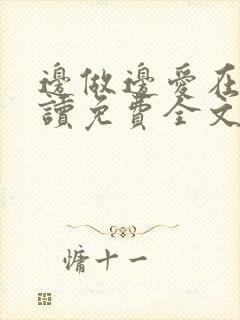 邊做邊愛在
讀免費全文
慵十一